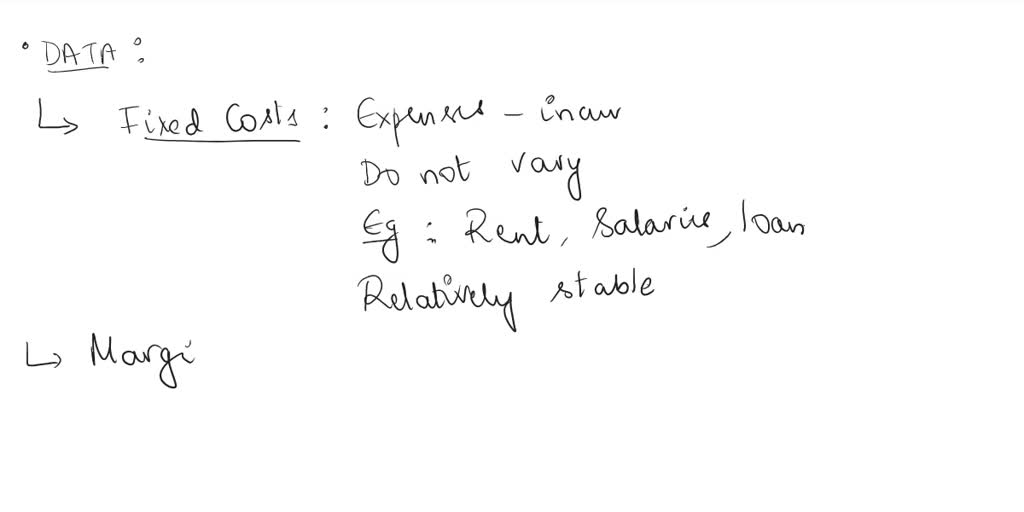 • DATA :
↳ Fixed Costs : Expenses -
Do not vary
Eg : Rent, Salarie, loan
Relatively stable
↳ Margi